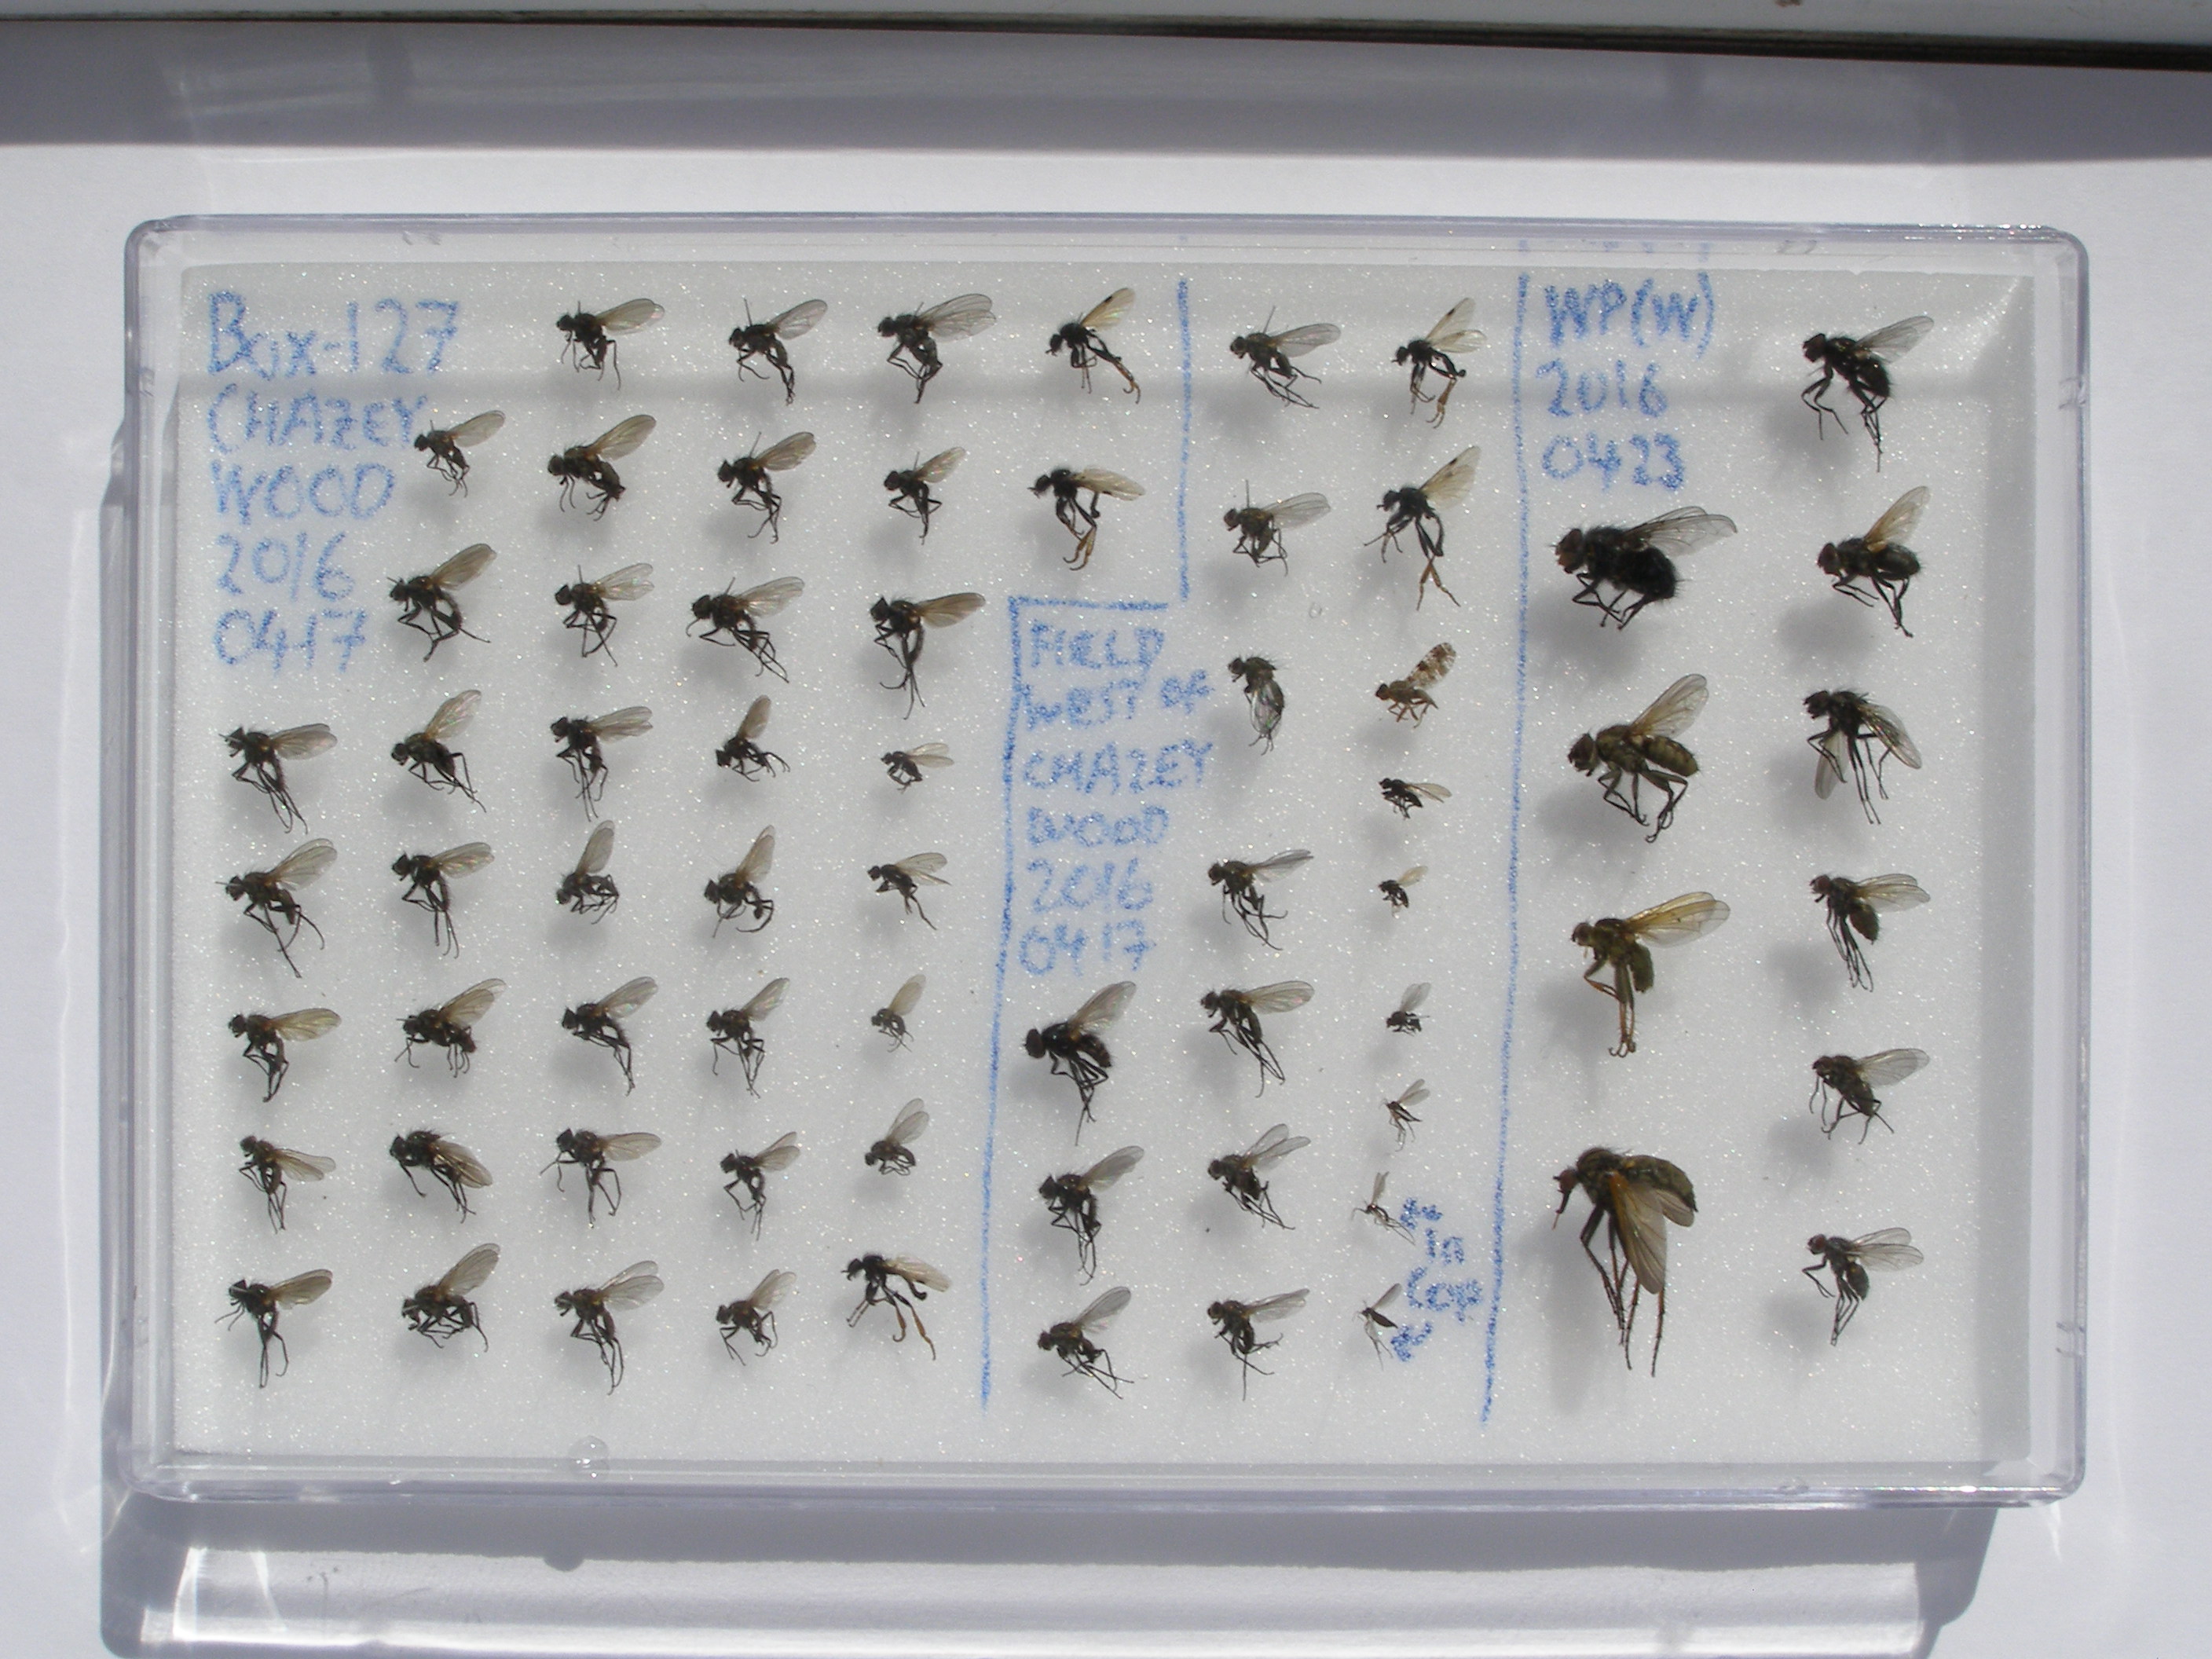 Box-127
CHAZEY
WOOD
2016
0417
FIELD
WEST OF
CHAZEY
WOOD
2016
0417
in
Cop
WP(W)
2016
0423